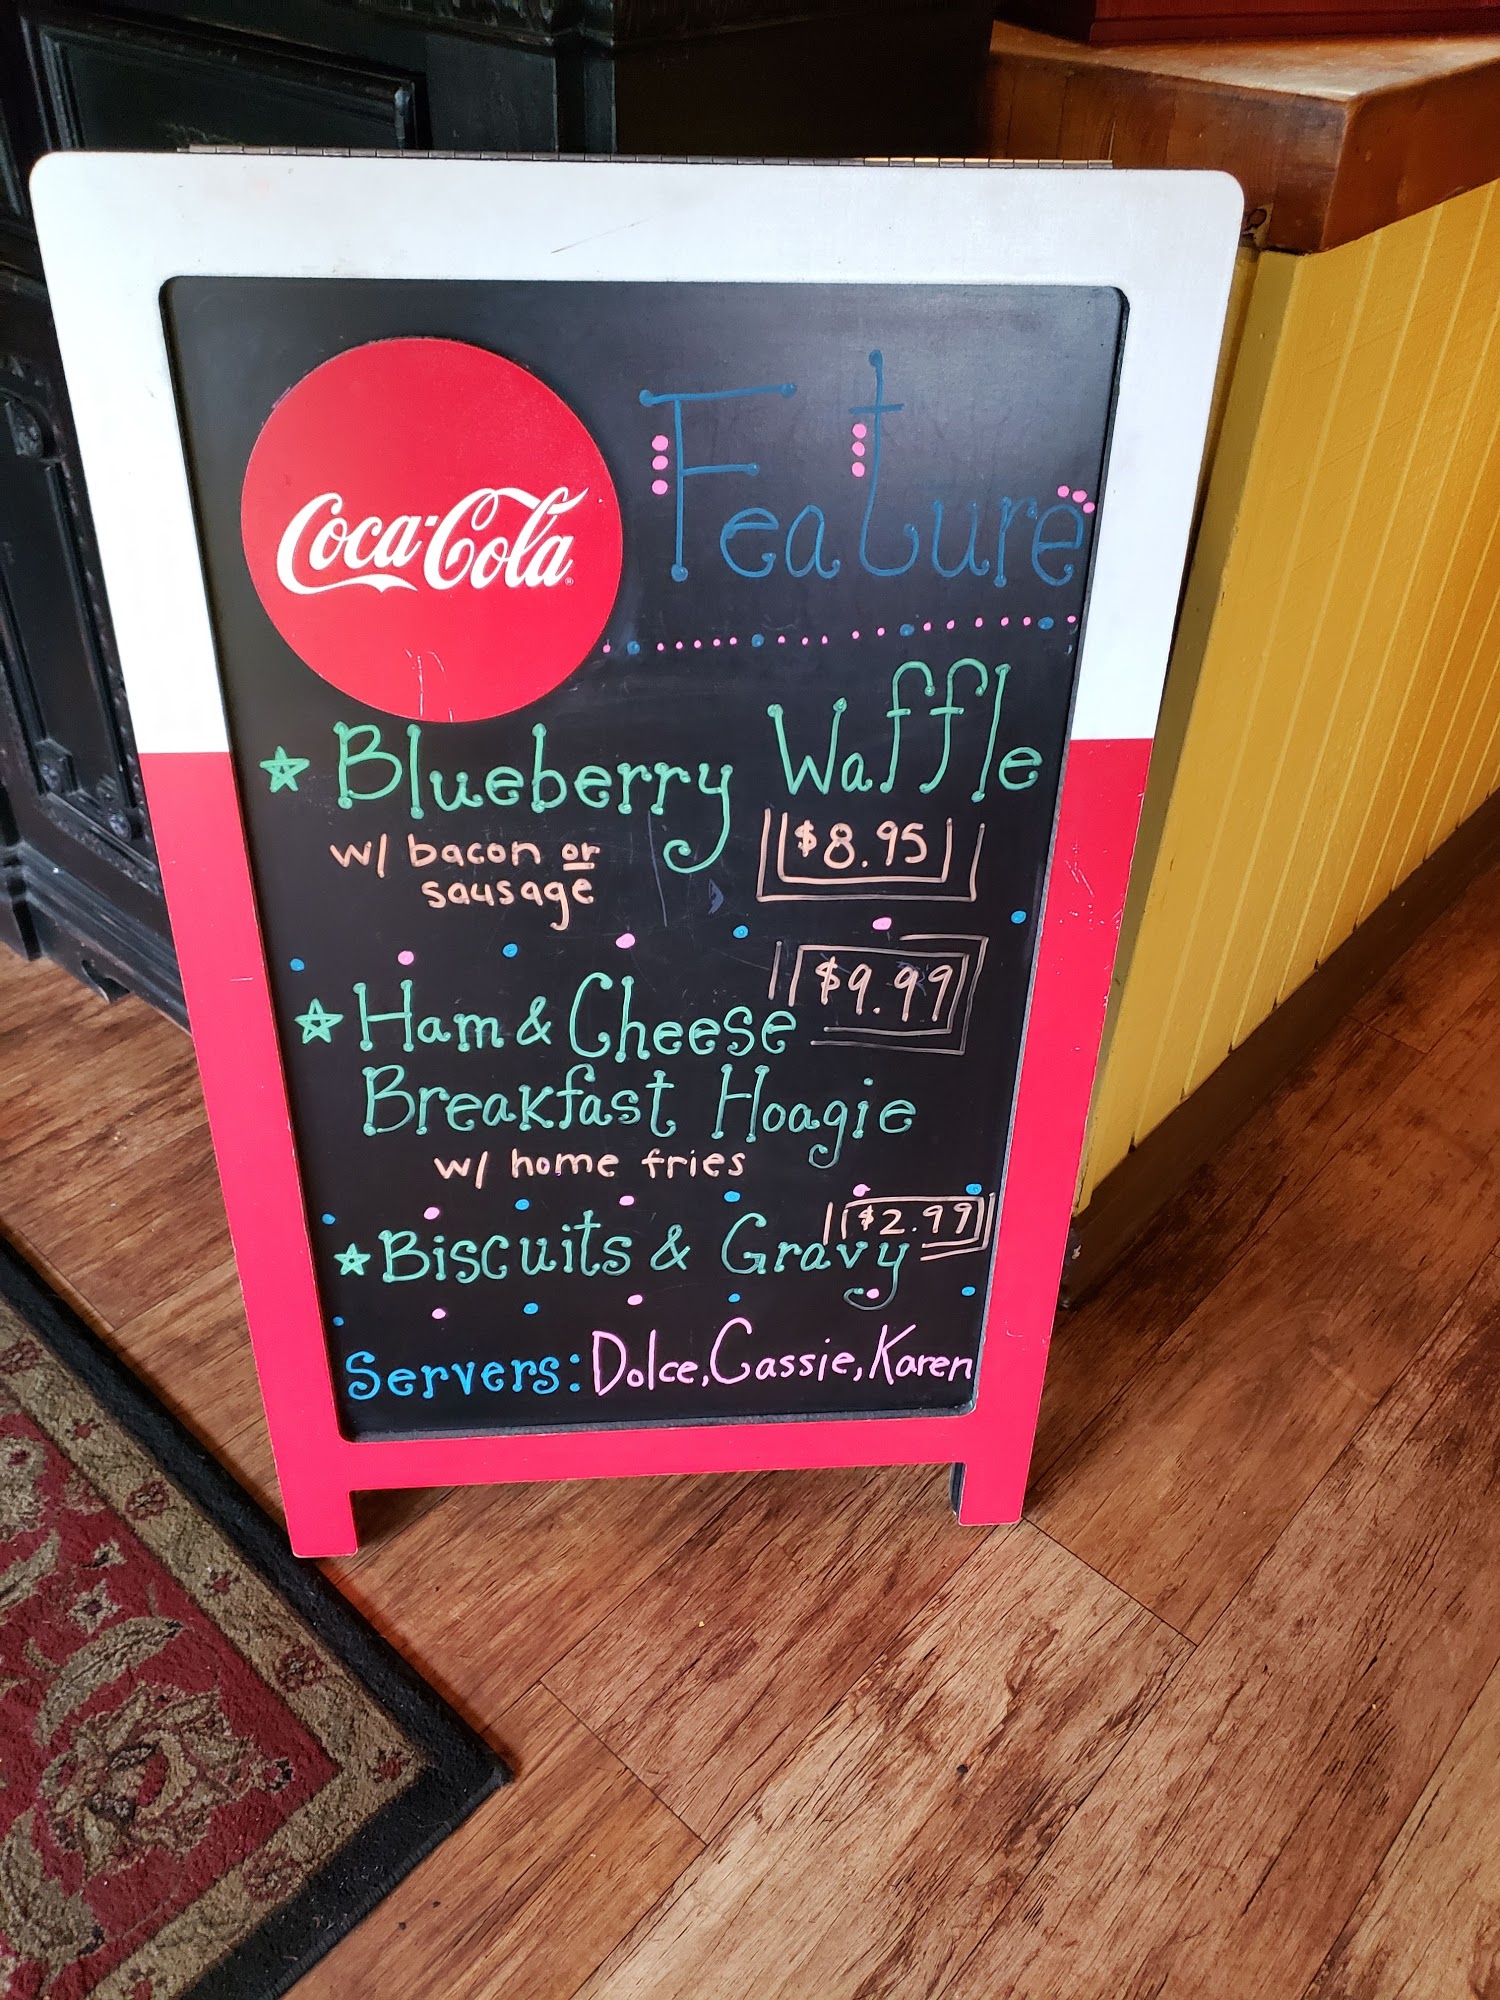 Coca-Cola
Feature
Blueberry Waffle
w/ bacon or
sausage
$8.95
$9.99
Ham & Cheese
Breakfast Hoagie
w/ home fries
$2.99
Biscuits & Gravy
Servers: Dolce, Cassie, Karen